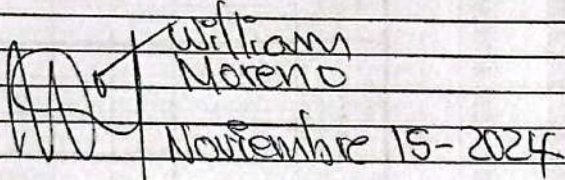 William
Moreno
Noviembre 15-2024